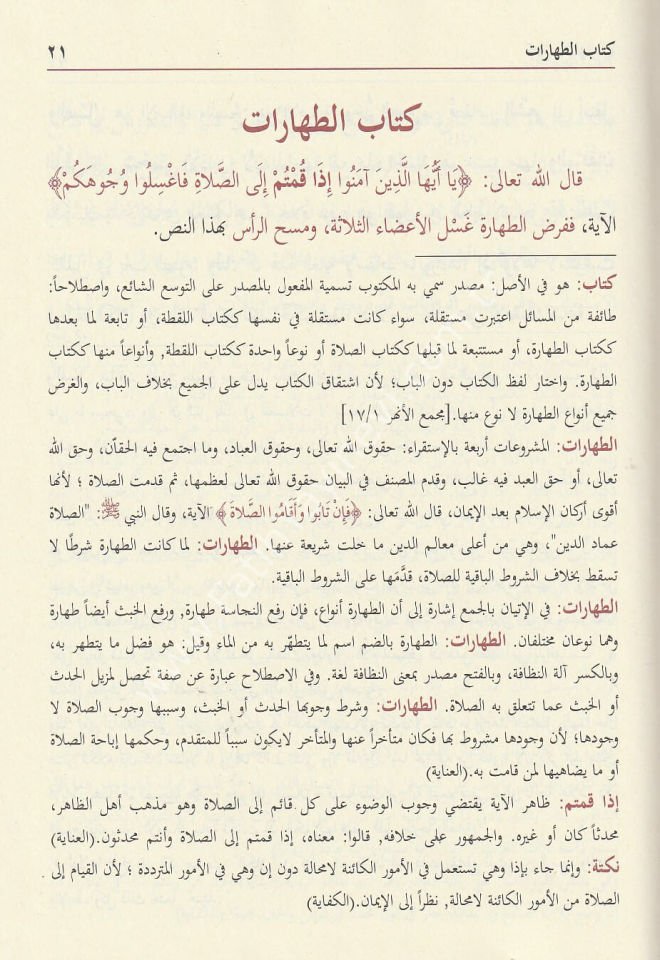 كتاب الطهارات ٢١
كتاب الطهارات
قال الله تعالى: ﴿يَا أَيُّهَا الَّذِينَ آمَنُوا إِذَا قُمْتُمْ إِلَى الصَّلَاةِ فَاغْسِلُوا وُجُوهَكُمْ﴾
الآية، ففرض الطهارة غَسْل الأعضاء الثلاثة، ومسح الرأس بهذا النص.
كتاب: هو في الأصل: مصدر سمي به المكتوب تسمية المفعول بالمصدر على التوسع الشائع، واصطلاحاً:
طائفة من المسائل اعتبرت مستقلة، سواء كانت مستقلة في نفسها ككتاب اللقطة، أو تابعة لما بعدها
ككتاب الطهارة، أو مستتبعة لما قبلها ككتاب الصلاة أو نوعاً واحدة ككتاب اللقطة, وأنواعاً منها ككتاب
الطهارة. واختار لفظ الكتاب دون الباب؛ لأن اشتقاق الكتاب يدل على الجميع بخلاف الباب، والغرض
جميع أنواع الطهارة لا نوع منها.[مجمع الأنهر ١٧/١]
الطهارات: المشروعات أربعة بالإستقراء: حقوق الله تعالى، وحقوق العباد، وما اجتمع فيه الحقّان، وحق الله
تعالى، أو حق العبد فيه غالب، وقدم المصنف في البيان حقوق الله تعالى لعظمها، ثم قدمت الصلاة ؛ لأنها
أقوى أركان الإسلام بعد الإيمان، قال الله تعالى: ﴿فَإِنْ تَابُوا وَأَقَامُوا الصَّلَاةَ﴾ الآية، وقال النبي ﷺ: "الصلاة
عماد الدين"، وهي من أعلى معالم الدين ما خلت شريعة عنها. الطهارات: لما كانت الطهارة شرطًا لا
تسقط بخلاف الشروط الباقية للصلاة، قدَّمَها على الشروط الباقية.
الطهارات: في الإتيان بالجمع إشارة إلى أن الطهارة أنواع، فإن رفع النجاسة طهارة, ورفع الخبث أيضاً طهارة
وهما نوعان مختلفان. الطهارات: الطهارة بالضم اسم لما يتطهّر به من الماء وقيل: هو فضل ما يتطهر به،
وبالكسر آلة النظافة، وبالفتح مصدر بمعنى النظافة لغة. وفي الاصطلاح عبارة عن صفة تحصل لمزيل الحدث
أو الخبث عما تتعلق به الصلاة. الطهارات: وشرط وجوبها الحدث أو الخبث، وسببها وجوب الصلاة لا
وجودها؛ لأن وجودها مشروط بها فكان متأخراً عنها والمتأخر لايكون سبباً للمتقدم، وحكمها إباحة الصلاة
أو ما يضاهيها لمن قامت به.(العناية)
إذا قمتم: ظاهر الآية يقتضي وجوب الوضوء على كل قائم إلى الصلاة وهو مذهب أهل الظاهر،
محدثاً كان أو غيره. والجمهور على خلافه, قالوا: معناه، إذا قمتم إلى الصلاة وأنتم محدثون.(العناية)
نكتة: وإنما جاء بإذا وهي تستعمل في الأمور الكائنة لامحالة دون إن وهي في الأمور المترددة ؛ لأن القيام إلى
الصلاة من الأمور الكائنة لامحالة, نظراً إلى الإيمان.(الكفاية)